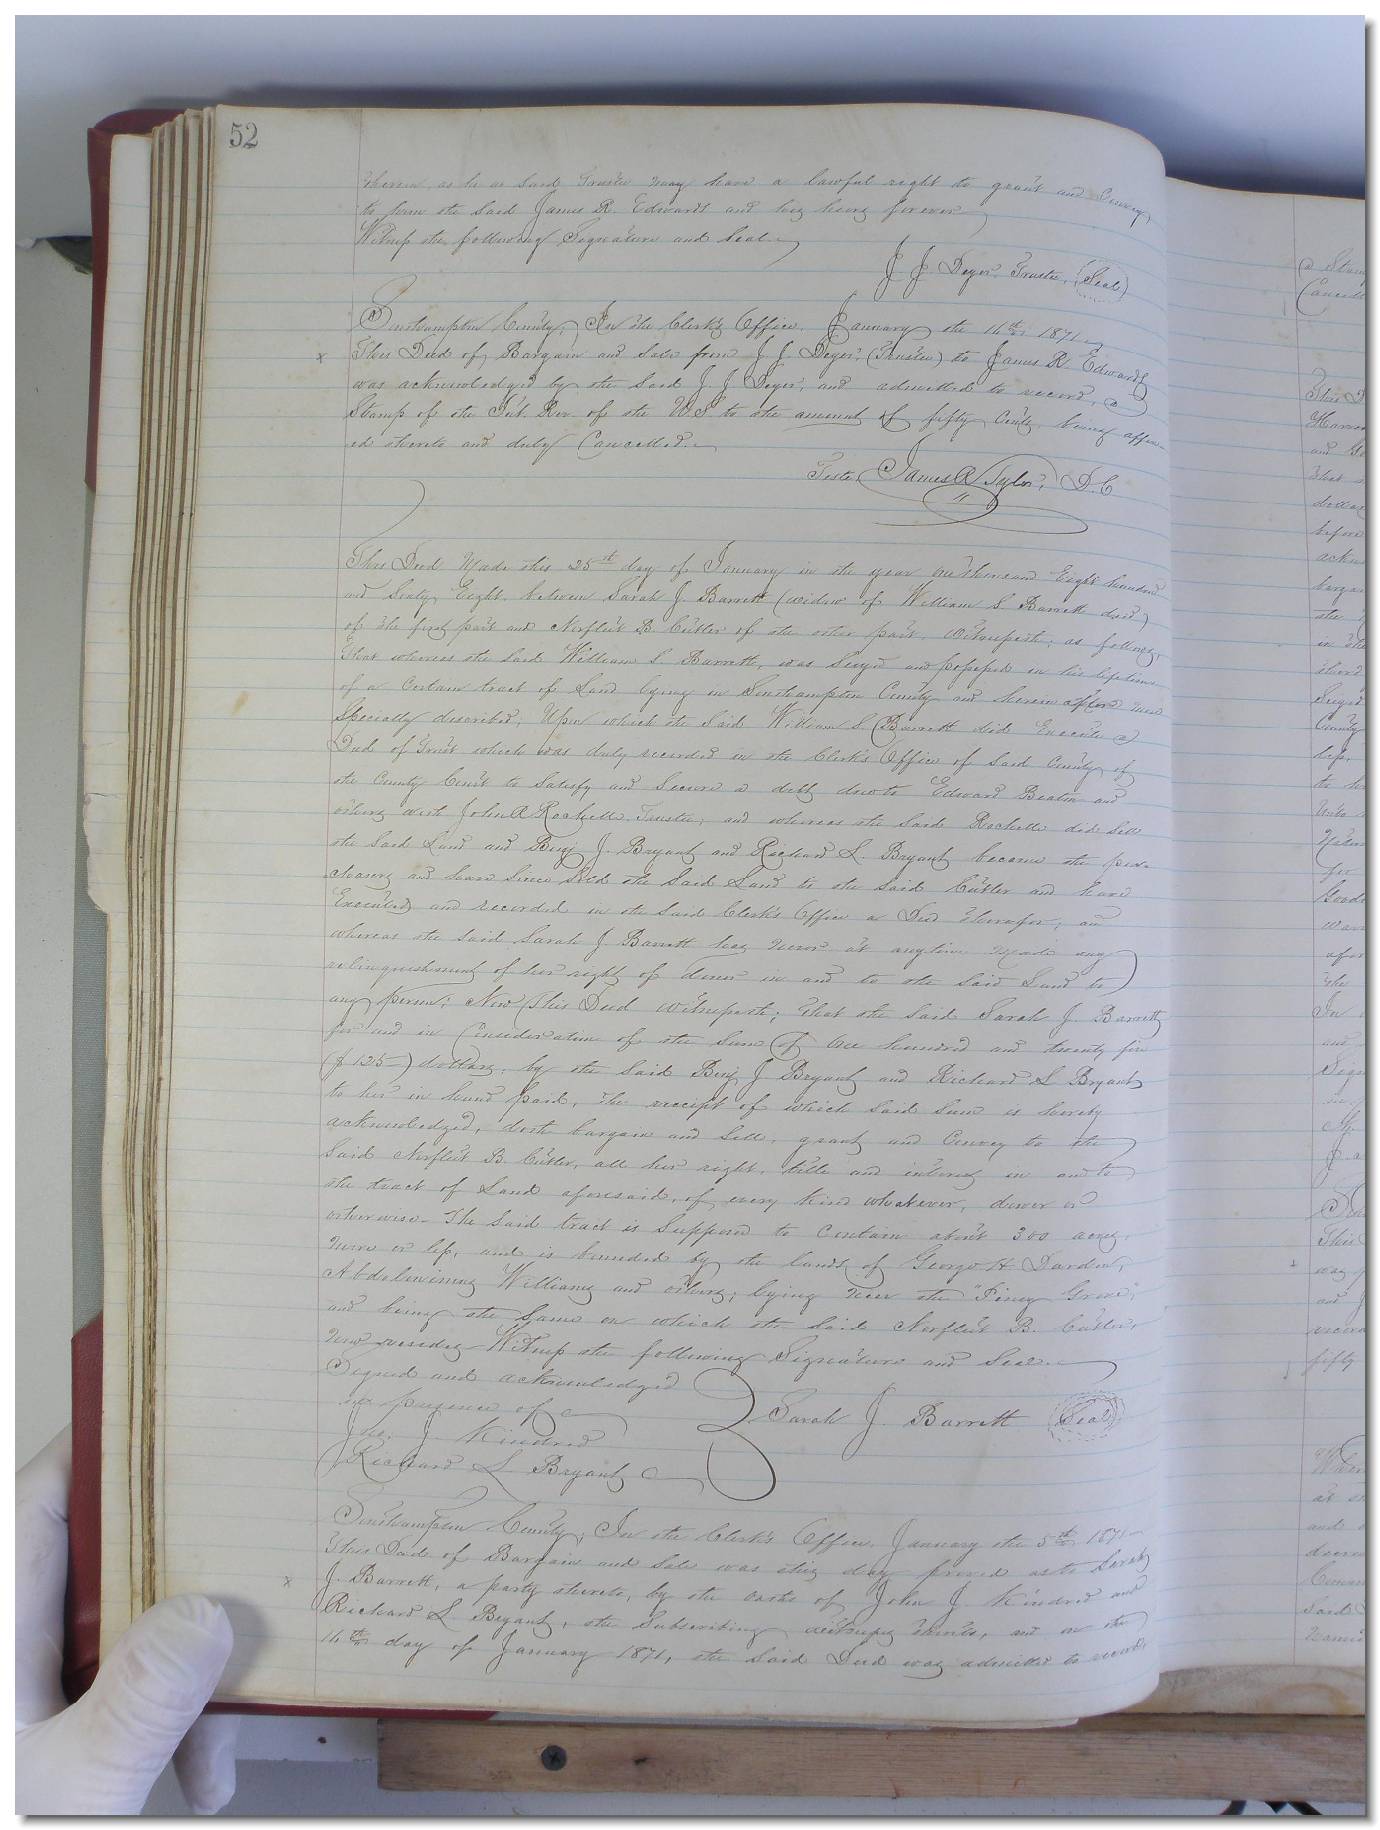 52
therein, as he as said Trustee may have a lawful right to grant and Convey
to him the said James R. Edwards and his heirs forever
Witness the following Signature and Seal.
J. J. Deyer. Trustee, (Seal)
Southampton County; In the Clerk's Office. January the 14th 1871
x This Deed of Bargain and Sale from J. J. Deyer, (Trustee) to James R. Edwards
was acknowledged by the said J. J. Deyer, and admitted to record, a
Stamp of the Int. Rev. of the US to the amount of fifty Cents being affix-
ed thereto and duly Cancelled.
Teste, James R Tyler, D.C
This Deed Made this 25th day of January in the year one thousand Eight hundred
and Sixty Eight. between Sarah J. Barrett (widow of William S. Barrett decd)
of the first part and Norfleit B. Cutler of the other part. Witnesseth; as follows,
That whereas the said William S. Barrett, was Seized and possessed in his lifetime
of a Certain tract of Land lying in Southampton County and herein after more
Specially described, Upon which the said William S. Barrett did Execute a
Deed of Trust which was duly recorded in the Clerk's Office of Said County of
the County Court to Satisfy and Secure a debt due to Edward Beaton and
others with John R Rochelle Trustee; and whereas the said Rochelle did Sell
the said Land and Benj J. Bryant and Richard L. Bryant became the pur-
chasers and have Since Sold the Said Land to the said Cutler and have
Executed and recorded in the Said Clerk's Office a Deed therefor; and
whereas the said Sarah J Barrett has never at any time Made any
relinquishment of her right of dower in and to the said Land to
any person; Now This Deed Witnesseth; That the said Sarah J. Barrett
for and in Consideration of the Sum of One hundred and twenty five
($125—) dollars. by the said Benj J Bryant and Richard L Bryant
to her in hand paid, the receipt of which Said Sum is hereby
acknowledged, doth bargain and Sell, grant and Convey to the
said Norfleit B. Cutler, all her right, title and interest in and to
the tract of Land aforesaid, of every kind whatever, dower or
otherwise. The said tract is Supposed to Contain about 300 acres
more or less, and is bounded by the lands of George H Darden,
Abdolonimus Williams and others; lying near the "Piney Grove,"
and being the Same on which the said Norfleit B. Cutler,
now resides Witness the following Signature and Seal.
Signed and acknowledged
in presence of
Jno. J. Kindred
Richard L Bryant
Sarah J. Barrett (Seal)
Southampton County; In the Clerk's Office, January the 5th 1871
This Deed of Bargain and Sale was this day proved as to Sarah
x J. Barrett, a party thereto, by the oaths of John J. Kindred and
Richard L Bryant, the Subscribing witnesses thereto, and on the
14th day of January 1871, the said Deed was admitted to record,